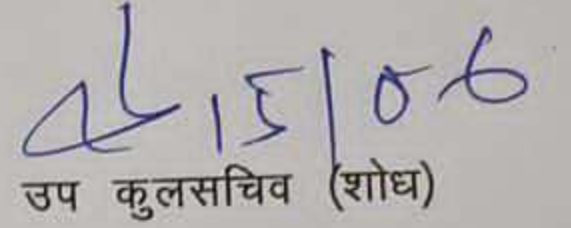 15/06
उप कुलसचिव (शोध)